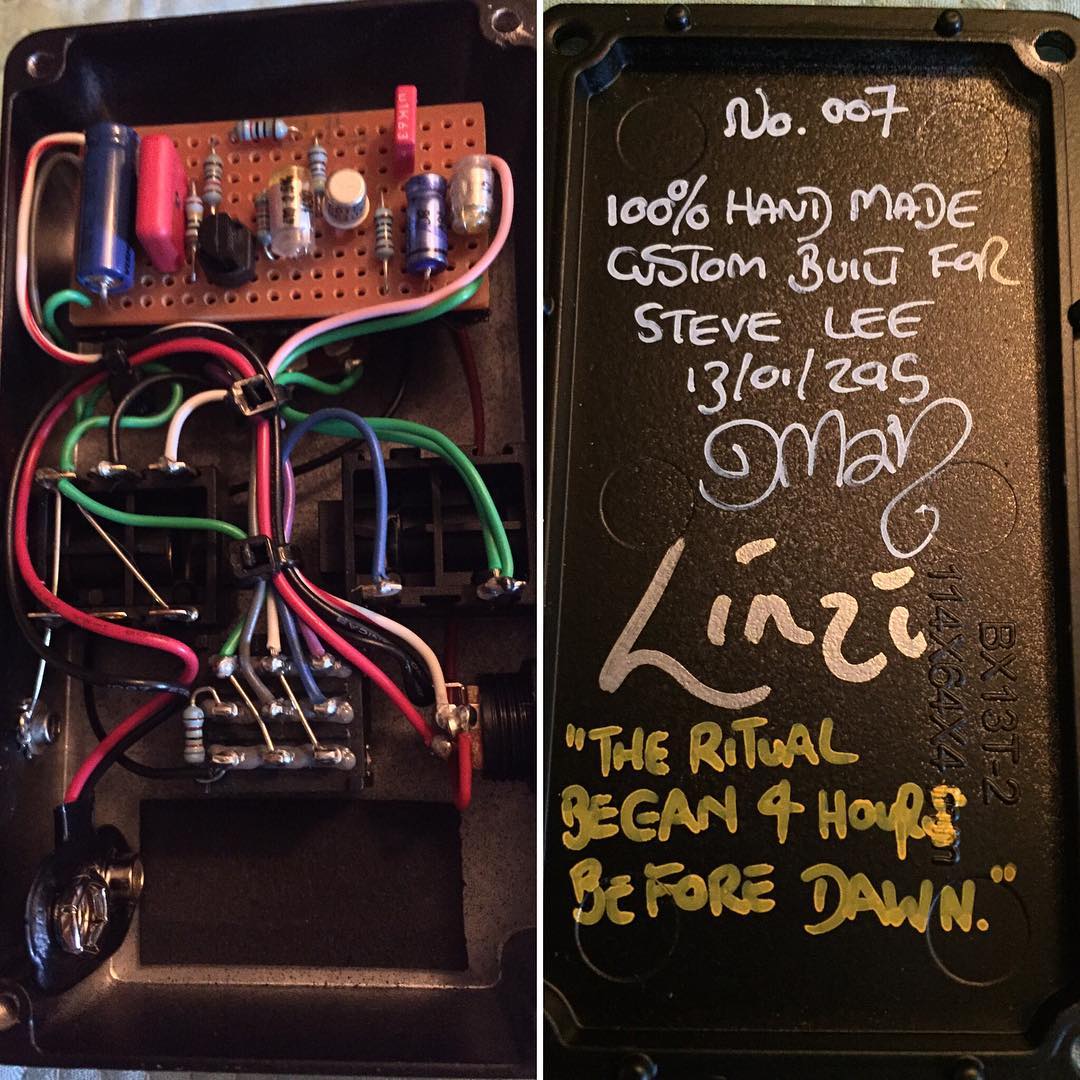 µ1K63
No. 007
100% HAND MADE
CUSTOM BUILT FOR
STEVE LEE
13/01/2015
Linzi
114X64X4
BX13T-2
"THE RITUAL
BEGAN 4 HOURS
BEFORE DAWN."